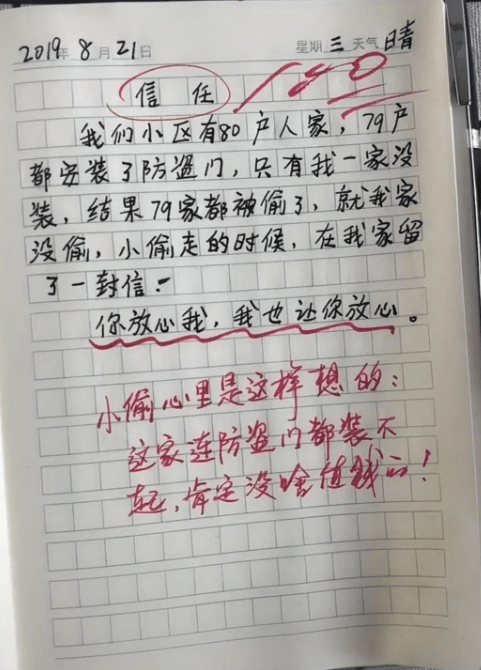 2019年8月21日 星期三 天气晴
信任
我们小区有80户人家，79户
都安装了防盗门，只有我一家没
装，结果79家都被偷了，就我家
没偷，小偷走的时候，在我家留
了一封信：
你放心我，我也让你放心。
小偷心里是这样想的：
这家连防盗门都装不
起，肯定没啥值钱的！